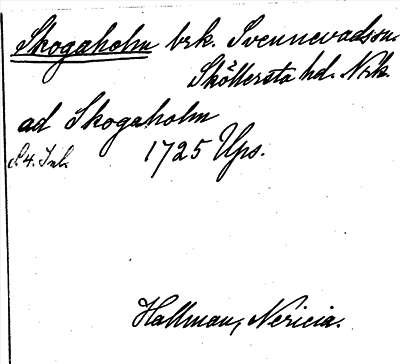 Skogaholm brk. Svennevads sn.
Sköllersta hd. Nrk.
ad Skogaholm
S. 4. Inl. 1725 Ups.
Hallman, Nericia.